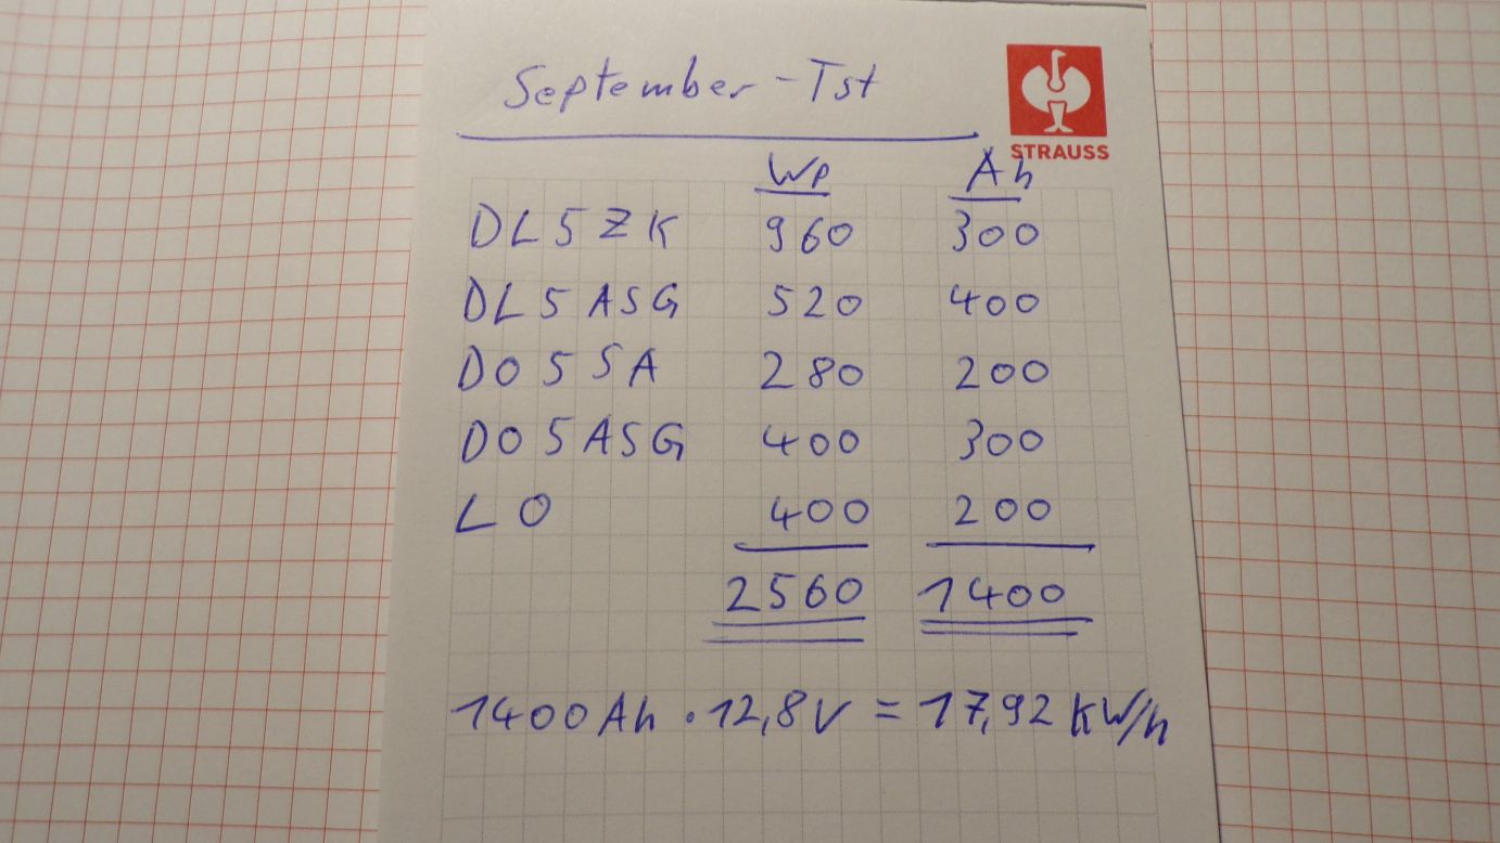 September-Tst
STRAUSS
Wp Ah
DL5ZK 960 300
DL5ASG 520 400
DO5SA 280 200
DO5ASG 400 300
LO 400 200
2560 1400
1400Ah · 12,8V = 17,92 KW/h